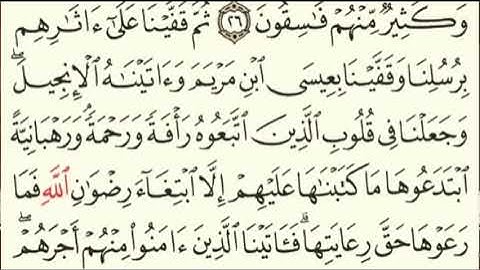 وَكَثِيرٌ مِّنْهُمْ فَٰسِقُونَ ۝٢٦ ثُمَّ قَفَّيْنَا عَلَىٰٓ ءَاثَٰرِهِم
بِرُسُلِنَا وَقَفَّيْنَا بِعِيسَى ٱبْنِ مَرْيَمَ وَءَاتَيْنَٰهُ ٱلْإِنجِيلَۖ
وَجَعَلْنَا فِى قُلُوبِ ٱلَّذِينَ ٱتَّبَعُوهُ رَأْفَةً وَرَحْمَةً وَرَهْبَانِيَّةً
ٱبْتَدَعُوهَا مَا كَتَبْنَٰهَا عَلَيْهِمْ إِلَّا ٱبْتِغَآءَ رِضْوَٰنِ ٱللَّهِ فَمَا
رَعَوْهَا حَقَّ رِعَايَتِهَاۖ فَـَٔاتَيْنَا ٱلَّذِينَ ءَامَنُوا۟ مِنْهُمْ أَجْرَهُمْۖ